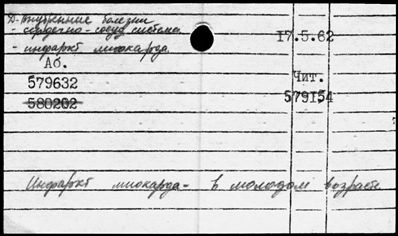 Д-Внутренние болезни
- сердечно-сосуд системы
- инфаркт миокарда
17.5.62
Аб.
Чит.
579632
579154
580202
Инфаркт миокарда - в молодом возрасте